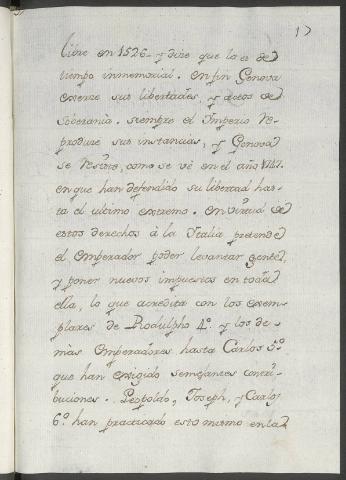 17
libre en 1526. y dize que lo es de
tiempo inmemorial. en fin Genova
exerze sus libertades, y dróos de
Soberania. siempre el Imperio re-
produze sus instancias, y Genova
se resiste, como se vè en el año 1747.
en que han defendido su libertad has-
ta el ultimo extremo. en virtud de
estos derechos à la Italia pretende
el emperador poder levantar gente,
y poner nuevos impuestos en toda
ella, lo que acredita con los exem-
plares de Rodulpho 4º. y los de-
màs emperadores hasta Carlos 5º.
que han exigido semejantes contri-
buciones. Leopoldo, Joseph, y Carlos
6º. han practicado esto mismo en la